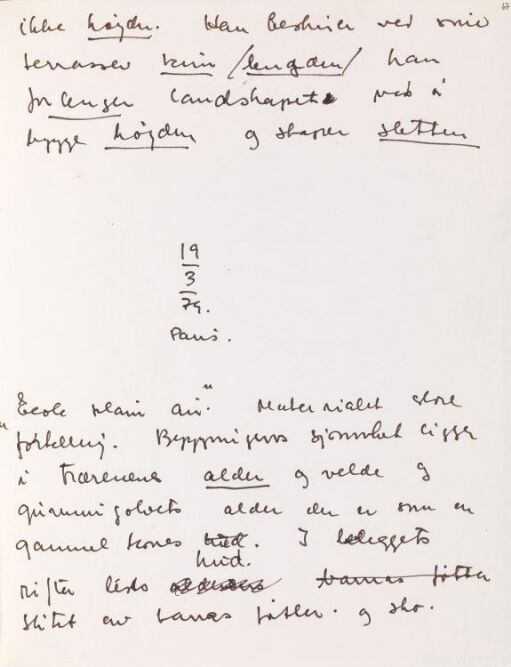 67
ikke højden. Han beskriver ved sine
terrasser kun /lengden/ han
forlenger landskapet ved å
bygge højden og skaper sletten
19
3
79.
Paris.
Ecole plain air." Materialet store
" fortelling. Bygningens skjønnhet ligger
i trærenes alder og velde og
gummigolvets alder der er som en
gammel kones hud. I beleggets
hud.
rifter leses barnas føtter
slitet av barnas føtter. og sko.